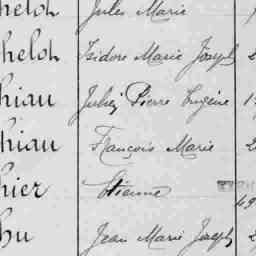 helot Jules Marie
helot Isidore Marie Joseph 2
hiau Jules Pierre Eugène 1
hiau François Marie 2
hier Etienne
49
hu Jean Marie Joseph 2